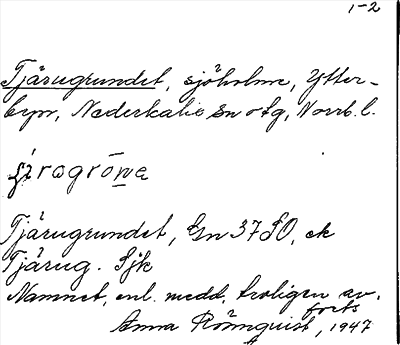 1-2
Tjärugrundet, sjöholme, Ytter-
byn, Nederkalix sn o tg, Norrb. l.
Tjärugrundet, Gn 37 SO, ek
Tjärug. Sjk
Namnet, enl. medd, troligen av.
forts
Anna Rönnquist, 1947